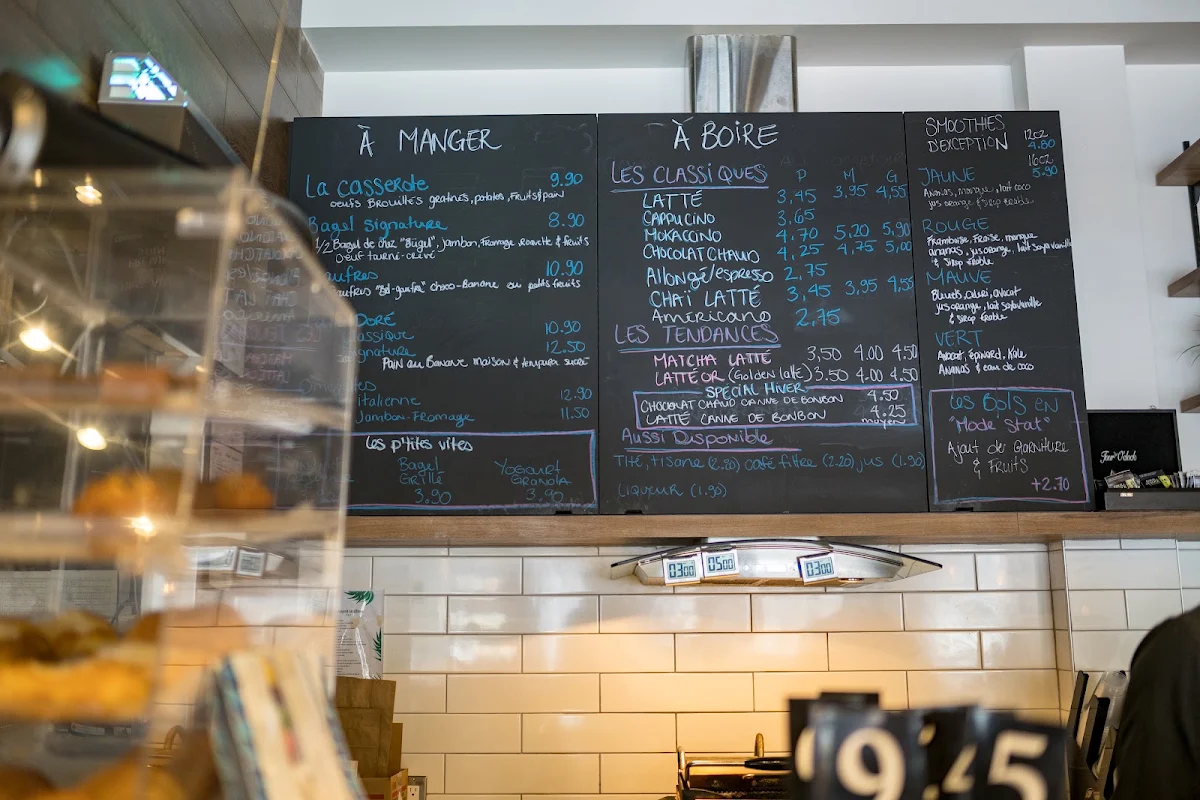 À MANGER
La casserole 9.90
oeufs Brouillés gratinés, patates, Fruits & pain
Bagel signature 8.90
1/2 Bagel de chez "Bügel", jambon, fromage, roquette & fruits
oeuf tourné-crevé
aufres 10.90
choco-Banane ou petits fruits
DORÉ
assique 10.90
gnature 12.50
Pain au Banane maison &
italienne 12.90
Jambon-Fromage 11.50
Les p'tites vites
Bagel Grillé 3.90
Yogourt Granola 3.90
À BOIRE
LES CLASSIQUES P M G
LATTÉ 3,45 3,95 4,55
CAPPUCINO 3.65
MOKACCINO 4.70 5,20 5,90
CHOCOLAT CHAUD 4,25 4,75 5,00
Allongé/espresso 2,75
CHAÏ LATTÉ 3,45 3,95 4,55
Américano 2,75
LES TENDANCES
MATCHA LATTÉ 3,50 4.00 4,50
LATTÉ OR (Golden latté) 3.50 4.00 4,50
SPÉCIAL HIVER
CHOCOLAT CHAUD CANNE DE BONBON 4.50
LATTÉ CANNE DE BONBON 4.25
moyen
Aussi Disponible
THÉ, tisane (2.20) café filtre (2.20) jus (1.90)
LIQUEUR (1.90)
SMOOTHIES D'EXCEPTION
12oz 4.80
16oz 5.90
JAUNE
Ananas, mangue, lait coco
jus orange & sirop érable
ROUGE
Framboise, Fraise, mangue
ananas, jus orange, lait soya vanille
& sirop érable
MAUVE
Bleuets, avocat
jus orange, lait soya vanille
& sirop érable
VERT
Avocat, épinard, Kale
Ananas & eau de coco
Les Bols en
"Mode Stat"
Ajout de GARNITURE
& Fruits
+2.70
03:00
05:00
03:00
9
45